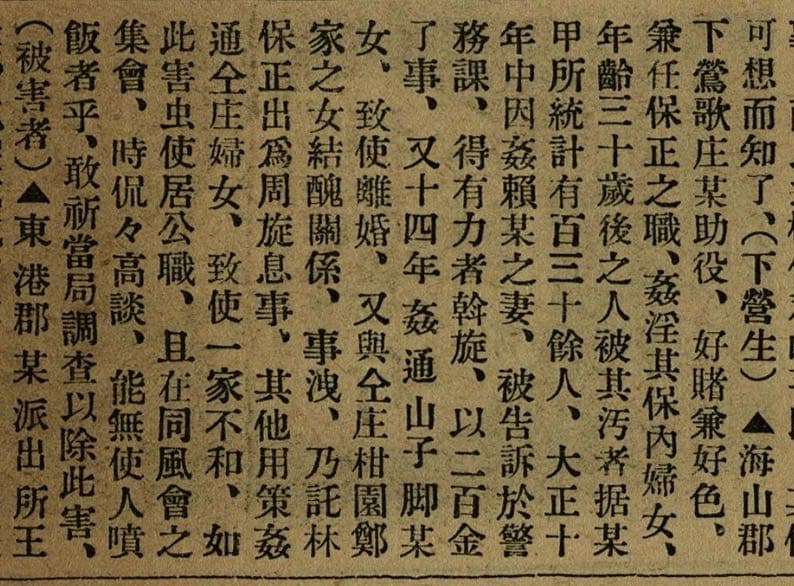 可想而知了、（下營生）▲海山郡
下鶯歌庄某助役、好賭兼好色。
兼任保正之職、姦淫其保內婦女、
年齡三十歲後之人被其汚者据某
甲所統計有百三十餘人、大正十
年中因姦賴某之妻、被告訴於警
務課、得有力者斡旋、以二百金
了事、又十四年姦通山子脚某
女、致使離婚、又與仝庄柑園鄭
家之女結醜關係、事洩、乃託林
保正出爲周旋息事、其他用策姦
通仝庄婦女、致使一家不和、如
此害虫使居公職、且在同風會之
集會、時侃々高談、能無使人噴
飯者乎、敢祈當局調查以除此害、
（被害者）▲東港郡某派出所王